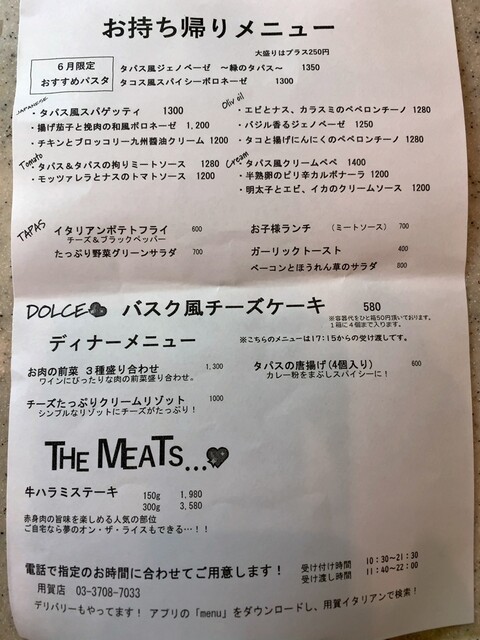 お持ち帰りメニュー
大盛りはプラス250円
6月限定
おすすめパスタ
タパス風ジェノベーゼ ～緑のタパス～ 1350
タコス風スパイシーボロネーゼ 1300
JAPANESE
・タパス風スパゲッティ 1300
・揚げ茄子と挽肉の和風ボロネーゼ 1,200
・チキンとブロッコリー九州醤油クリーム 1200
Oliv oil
・エビとナス、カラスミのペペロンチーノ 1280
・バジル香るジェノベーゼ 1250
・タコと揚げにんにくのペペロンチーノ 1280
Tomato
・タパス＆タパスの拘りミートソース 1280
・モッツァレラとナスのトマトソース 1200
Cream
・タパス風クリームペペ 1400
・半熟卵のピリ辛カルボナーラ 1200
・明太子とエビ、イカのクリームソース 1200
TAPAS
イタリアンポテトフライ 600
チーズ＆ブラックペッパー
たっぷり野菜グリーンサラダ 700
お子様ランチ （ミートソース） 700
ガーリックトースト 400
ベーコンとほうれん草のサラダ 800
DOLCE バスク風チーズケーキ 580
※容器代をひと箱50円頂いております。
1箱に4個まで入ります。
ディナーメニュー
※こちらのメニューは17:15からの受け渡しです。
お肉の前菜 3種盛り合わせ 1,300
ワインにぴったりな肉の前菜盛り合わせ。
チーズたっぷりクリームリゾット 1000
シンプルなリゾットにチーズがたっぷり！
タパスの唐揚げ(4個入り) 600
カレー粉をまぶしスパイシーに！
THE MEATS...
牛ハラミステーキ 150g 1,980
300g 3,580
赤身肉の旨味を楽しめる人気の部位
ご自宅なら夢のオン・ザ・ライスもできる…！！
電話で指定のお時間に合わせてご用意します！
受け付け時間 10:30～21:30
受け渡し時間 11:40～22:00
用賀店 03-3708-7033
デリバリーもやってます！ アプリの「menu」をダウンロードし、用賀イタリアンで検索！